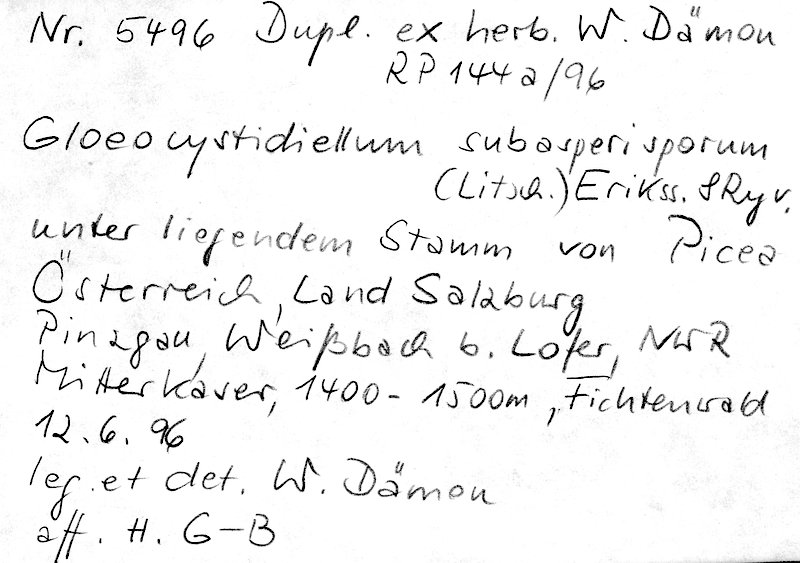 Nr. 5496 Dupl. ex herb. W. Dämon
RP 144a/96
Gloeocystidiellum subasperisporum
(Litsch.) Erikss. & Ryv.
unter liegendem Stamm von Picea
Österreich, Land Salzburg
Pinzgau, Weißbach b. Lofer, NWR
Mitterkaser, 1400-1500m, Fichtenwald
12.6.96
leg. et det. W. Dämon
aff. H. G-B